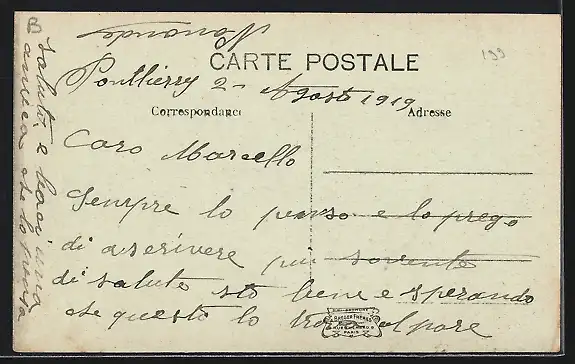 CARTE POSTALE
Ponthierry 2 - Agosto 1919
Correspondance
Adresse
Caro Marcello
Sempre lo penso e lo prego
di ascrivere piu sovvente
di salute sto bene e sperando
che questo lo al pare
saluti e baci una
amica che lo pensa
B
199
PARIS